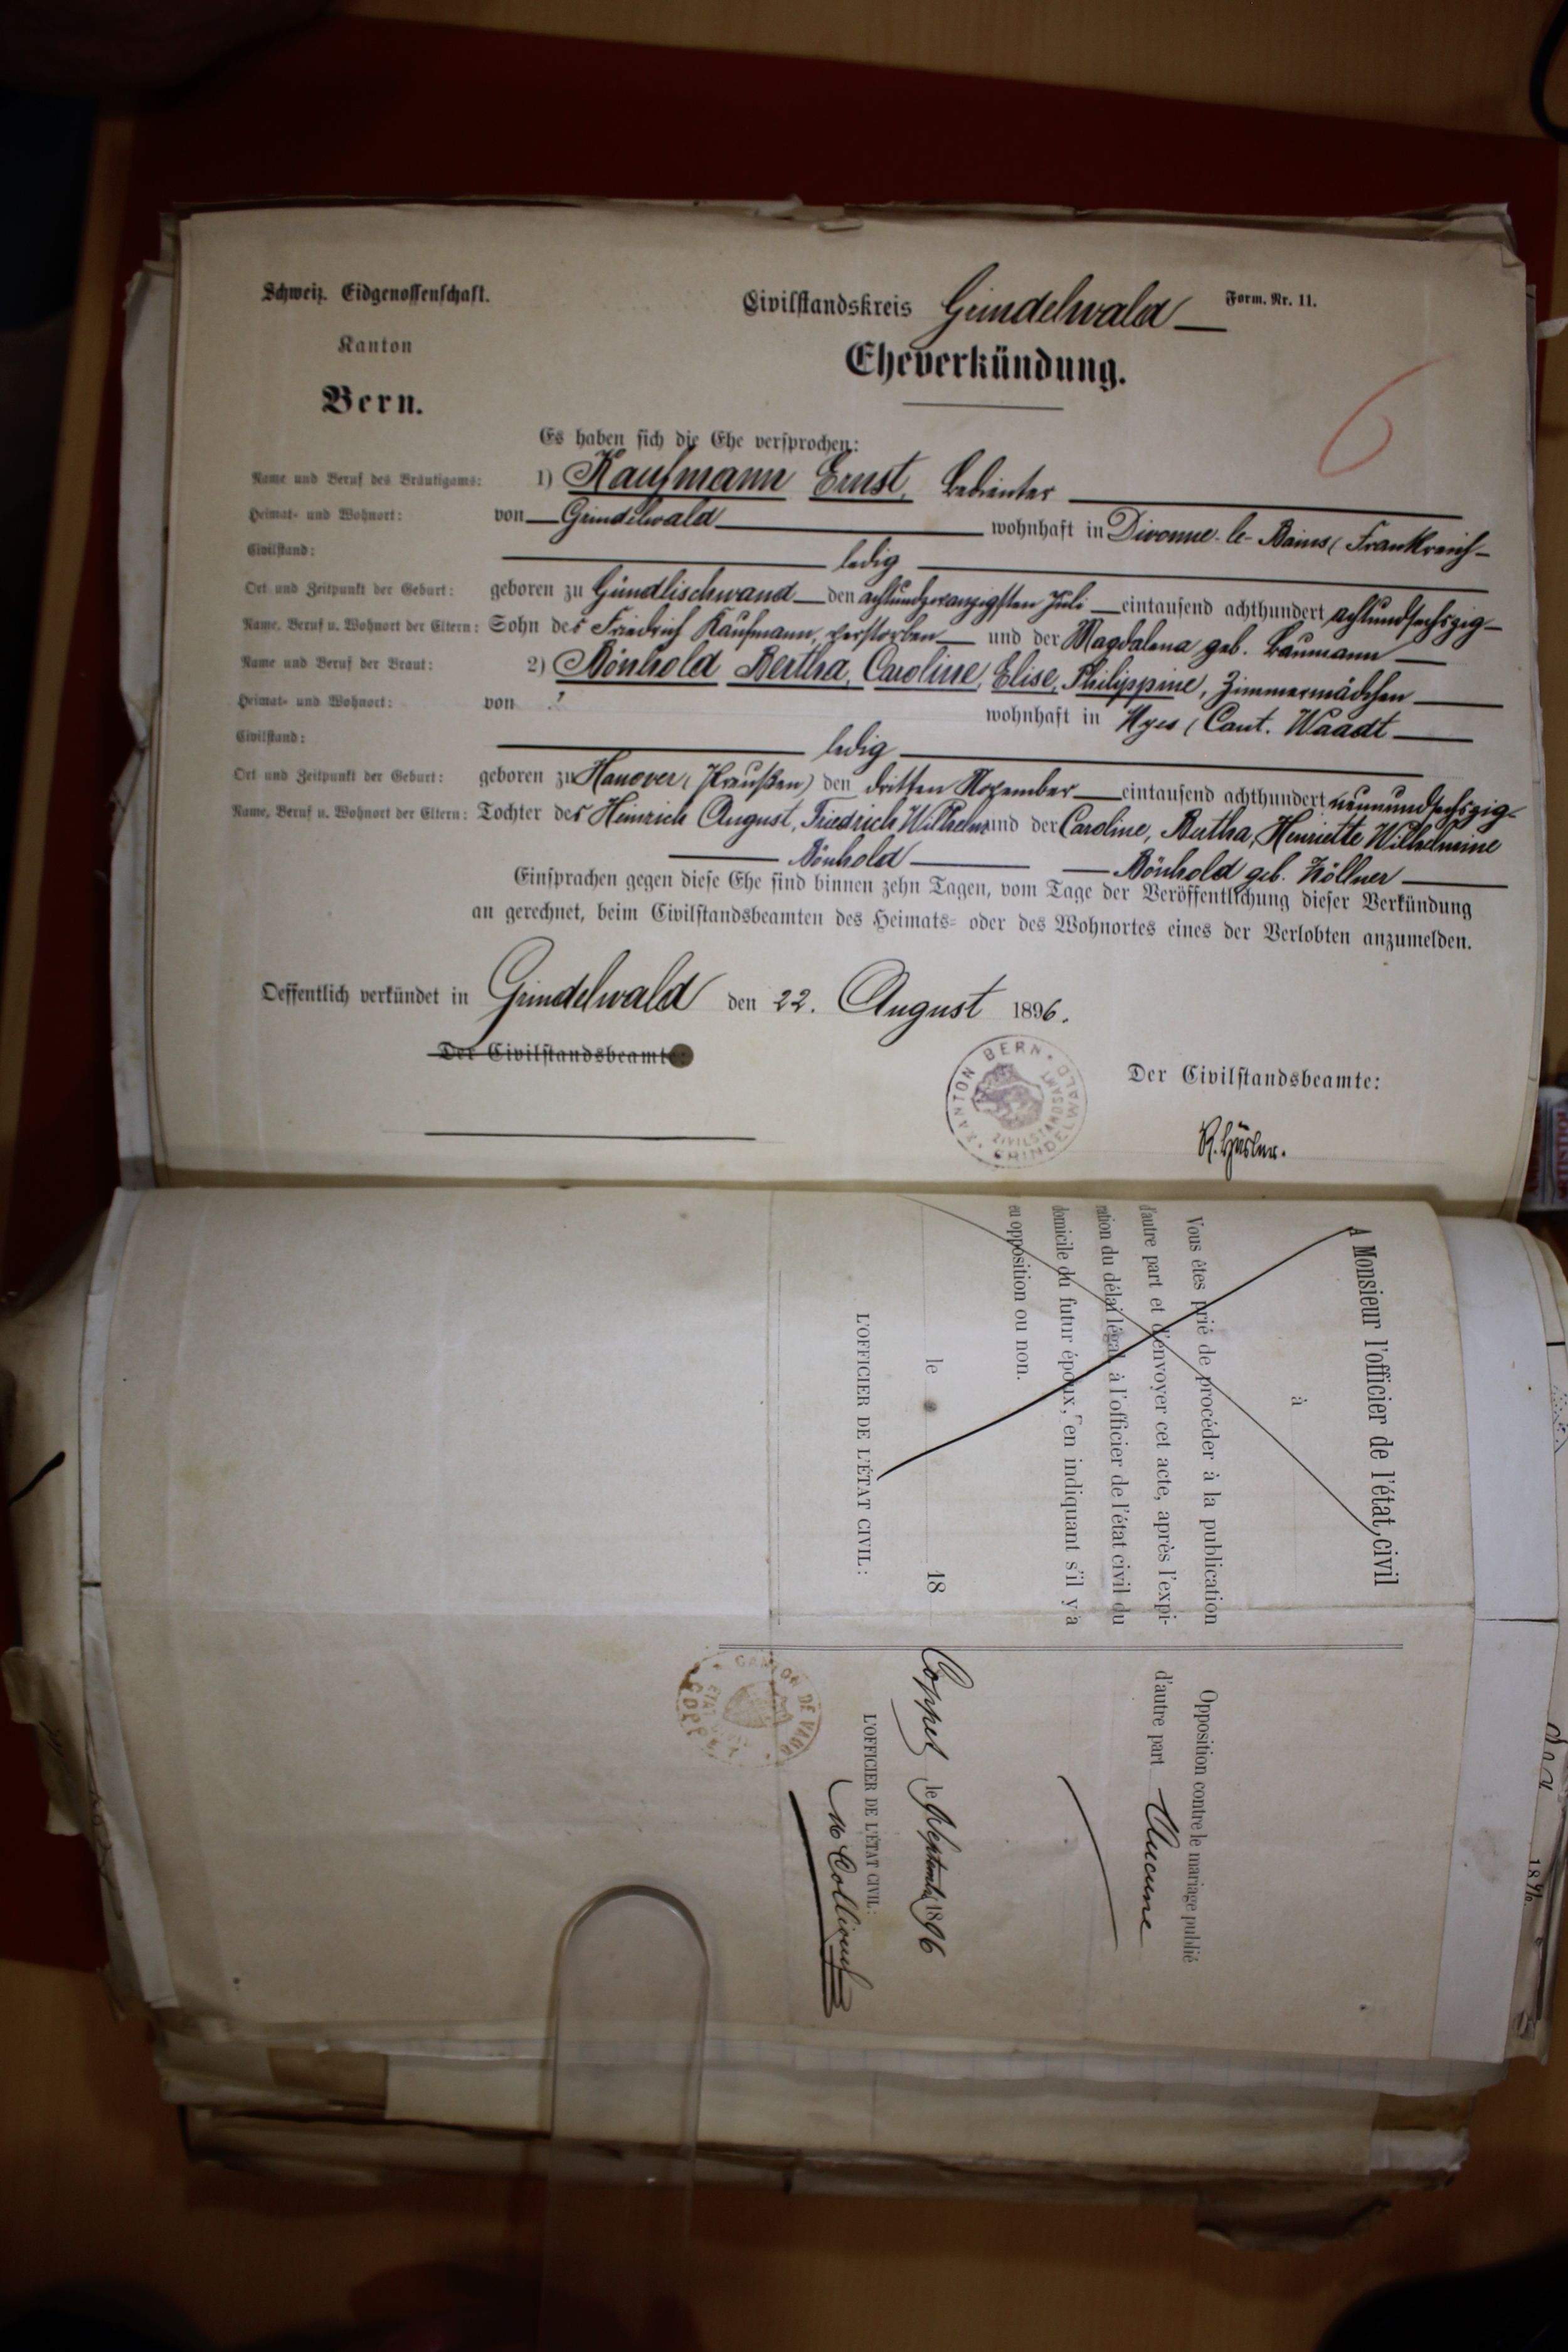 Schweiz. Eidgenossenschaft.
Kanton
Bern.
Civilstandskreis Grindelwald
Form. Nr. 11.
Eheverkündung.
6
Es haben sich die Ehe versprochen:
Name und Beruf des Bräutigams: 1) Kaufmann Ernst, Bedienter
Heimat- und Wohnort: von Grindelwald wohnhaft in Divonne-le-Bains (Frankreich
Civilstand: ledig
Ort und Zeitpunkt der Geburt: geboren zu Gündlischwand den achtundzwanzigsten Juli eintausend achthundert achtundsechszig
Name, Beruf u. Wohnort der Eltern: Sohn des Friedrich Kaufmann, verstorben und der Magdalena geb. Baumann
Name und Beruf der Braut: 2) Bönhold Bertha, Caroline, Elise, Philippine, Zimmermädchen
Heimat- und Wohnort: von ? wohnhaft in (Cant. Waadt
Civilstand: ledig
Ort und Zeitpunkt der Geburt: geboren zu Hanover (Preußen) den dritten November eintausend achthundert neunundsechszig
Name, Beruf u. Wohnort der Eltern: Tochter des Heinrich August, Friedrich Wilhelm und der Caroline, Bertha, Henriette Wilhelmine
Bönhold Bönhold geb. Zöllner
Einsprachen gegen diese Ehe sind binnen zehn Tagen, vom Tage der Veröffentlichung dieser Verkündung
an gerechnet, beim Civilstandsbeamten des Heimats- oder des Wohnortes eines der Verlobten anzumelden.
Oeffentlich verkündet in Grindelwald den 22. August 1896.
Der Civilstandsbeamte:
KANTON BERN
ZIVILSTANDSAMT
GRINDELWALD
Der Civilstandsbeamte:
A Monsieur l'officier de l'état civil
à
Vous êtes prié de procéder à la publication
d'autre part et d'envoyer cet acte, après l'expi-
ration du délai légal, à l'officier de l'état civil du
domicile du futur époux, en indiquant s'il y a
eu opposition ou non.
le 18
L'OFFICIER DE L'ÉTAT CIVIL:
Opposition contre le mariage publié
d'autre part Aucune
Coppet le Septembre 1896
L'OFFICIER DE L'ÉTAT CIVIL:
CANTON DE VAUD
ETAT CIVIL
COPPET